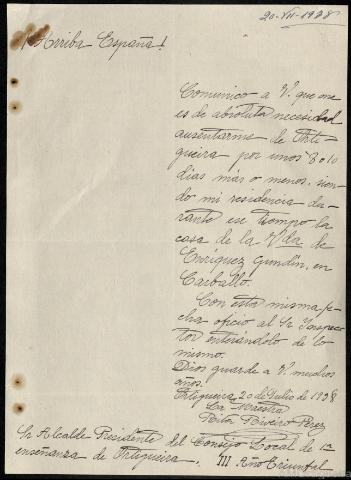 20-VII-1938
¡Arriba España!
Comunico a Vd. que me
es de absoluta necesidad
ausentarme de Orti-
gueira por unos 8 o 10
días más o menos, sien-
do mi residencia du-
rante ese tiempo la
casa de la Vda de
Enríquez Gundín, en
Carballo.
Con esta misma fe-
cha oficio al Sr Inspec-
tor enterándolo de lo
mismo.
Dios guarde a V. muchos
años.
Ortigueira 20 de Julio de 1938
La Maestra
Riveiro Pérez
Sr Alcalde Presidente del Consejo Local de 1ª
enseñanza de Ortigueira. III Año Triunfal